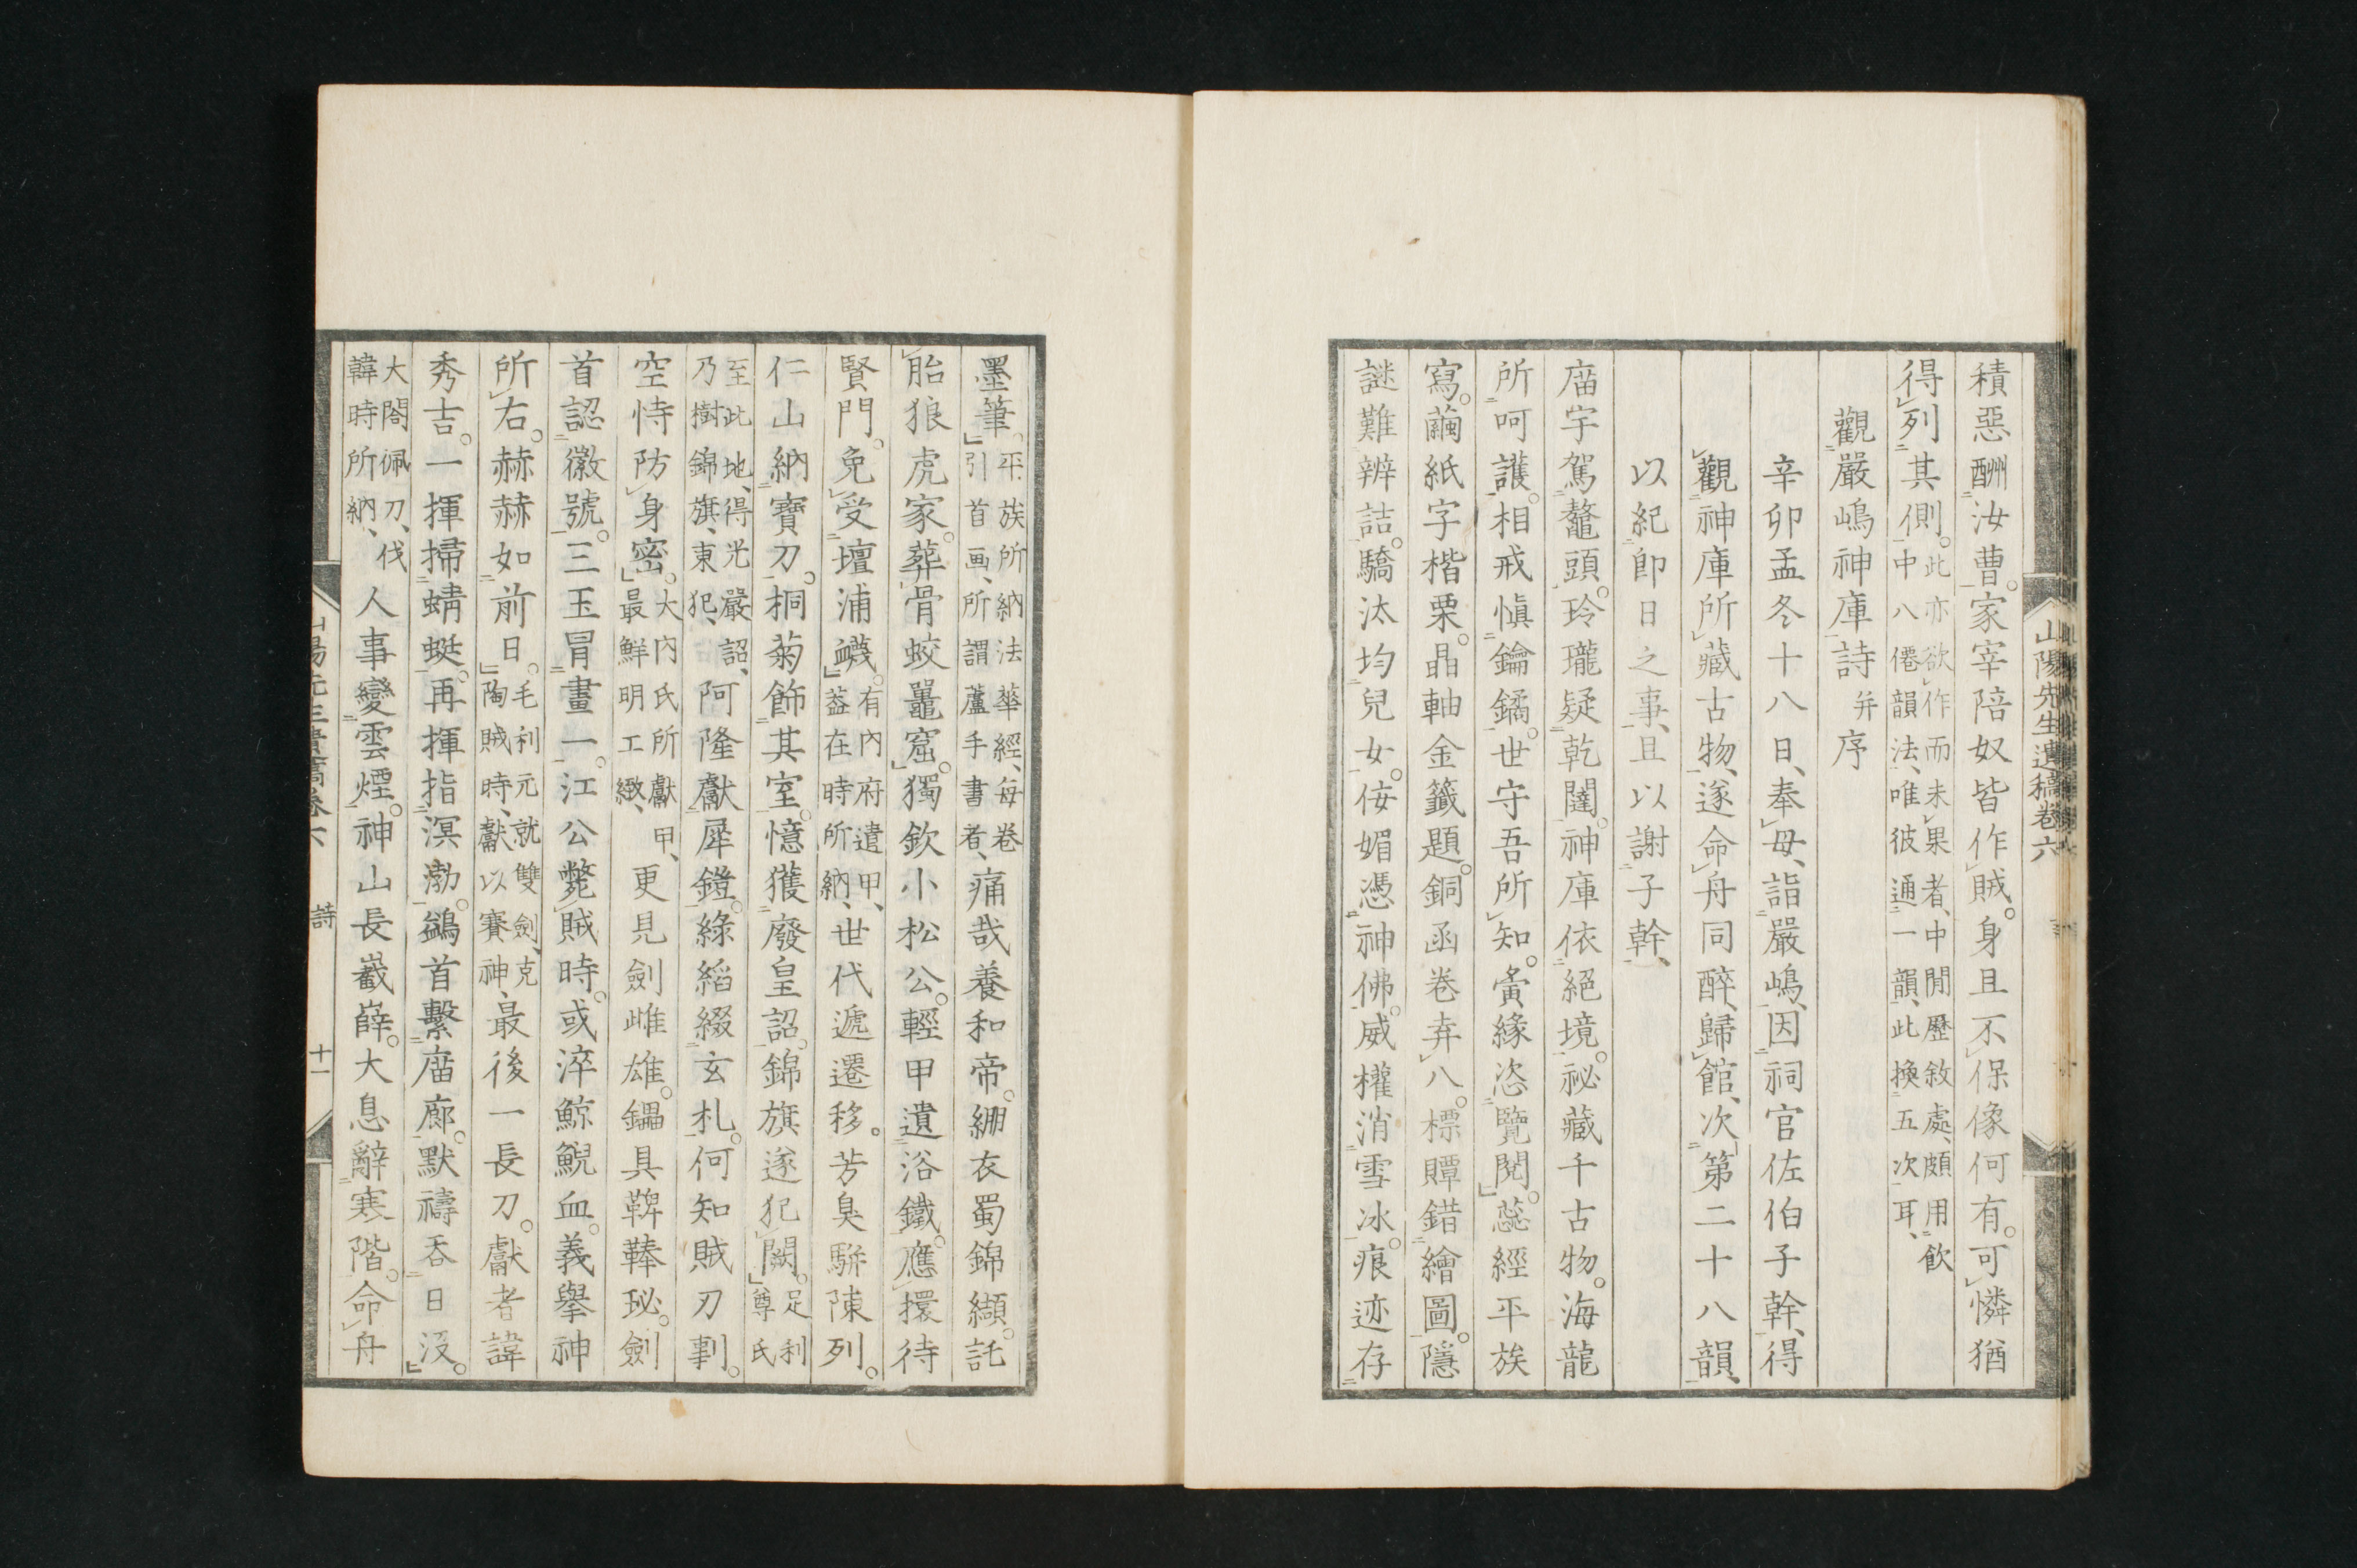 山陽先生遺稿卷六
積惡酬汝曹。家宰陪奴皆作賊。身且不保像何有。可憐猶
得列其側。此亦欲作而未果者、中閒歷敘處、頗用飲
中八僊韻法、唯彼通一韻、此換五次耳、
觀嚴嶋神庫詩 并序
辛卯孟冬十八日、奉母、詣嚴嶋、因祠官佐伯子幹、得
觀神庫所藏古物、遂命舟同醉、歸館、次第二十八韻、
以紀卽日之事、且以謝子幹、
庿宇駕鼇頭。玲瓏疑乾闥。神庫依絕境。祕藏千古物。海龍
所呵護。相戒愼鑰鐍。世守吾所知。夤緣恣覽閱。蕊經平族
寫。繭紙字楷栗。晶軸金籤題。銅函卷弆八。標贉錯繪圖。隱
謎難辨詰。驕汰均兒女。侫媚憑神佛。威權消雪冰。痕迹存
墨筆。平族所納法華經、每卷
引首画、所謂蘆手書者、痛哉養和帝。綳衣蜀錦纈。託
胎狼虎家。葬骨蛟鼉窟。獨欽小松公。輕甲遺浴鐵。應擐待
賢門。免受壇浦衊。有內府遣甲、
葢在時所納、世代遞遷移。芳臭駢陳列。
仁山納寶刀。桐菊飾其室。憶獲廢皇詔。錦旗遂犯闕。足利
尊氏
至此地、得光嚴詔、
乃樹錦旗、東犯、阿隆獻犀鎧。綠縚綴玄札。何知賊刃剚。
空恃防身密。大內氏所獻甲、
最鮮明工緻、更見劍雌雄。鑘具鞞琫珌。劍
首認徽號。三玉冒畫一。江公斃賊時。或淬鯨鯢血。義擧神
所右。赫赫如前日。毛利元就雙劍、克
陶賊時、獻以賽神、最後一長刀。獻者諱
秀吉。一揮掃蜻蜓。再揮指溟渤。鷁首繫庿廊。默禱呑日沒。
大閤佩刀、伐
韓時所納、人事變雲煙。神山長巀嶭。大息辭寒階。命舟
詩 十一